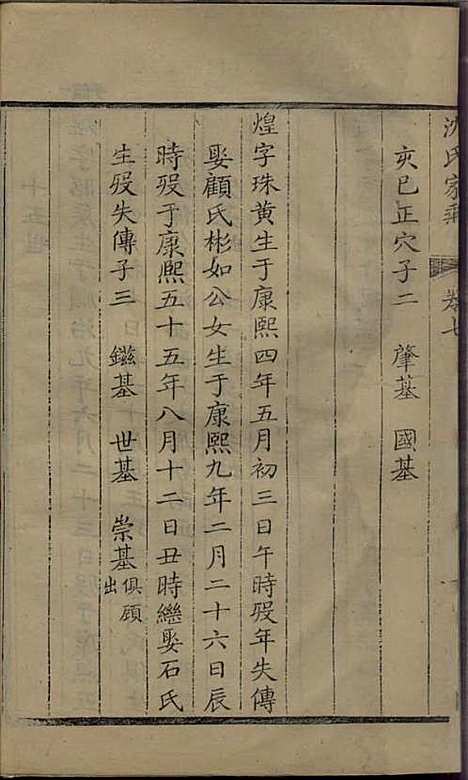 沈氏家乘 卷七
亥巳正穴子二 肇基 國基
煌字珠黃生于康熙四年五月初三日午時歿年失傳
娶顧氏彬如公女生于康熙九年二月二十六日辰
時歿于康熙五十五年八月十二日丑時繼娶石氏
生歿失傳子三 鎡基 世基 崇基俱顧出